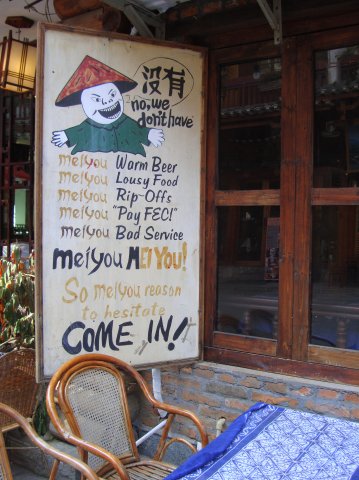 没有
"no, we
don't have
meiyou Warm Beer
meiyou Lousy Food
meiyou Rip-Offs
meiyou "Pay FEC!"
meiyou Bad Service
meiyou MEIYOU!
So meiyou reason
to hesitate
COME IN!